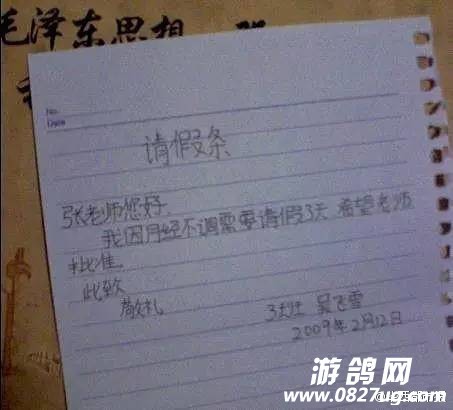 毛泽东思想
No.
Date
请假条
张老师您好
我因月经不调需要请假3天 希望老师
批准
此致
敬礼
3大班 吴飞雪
2009年2月12日
游鸽网
www.0827ug.com